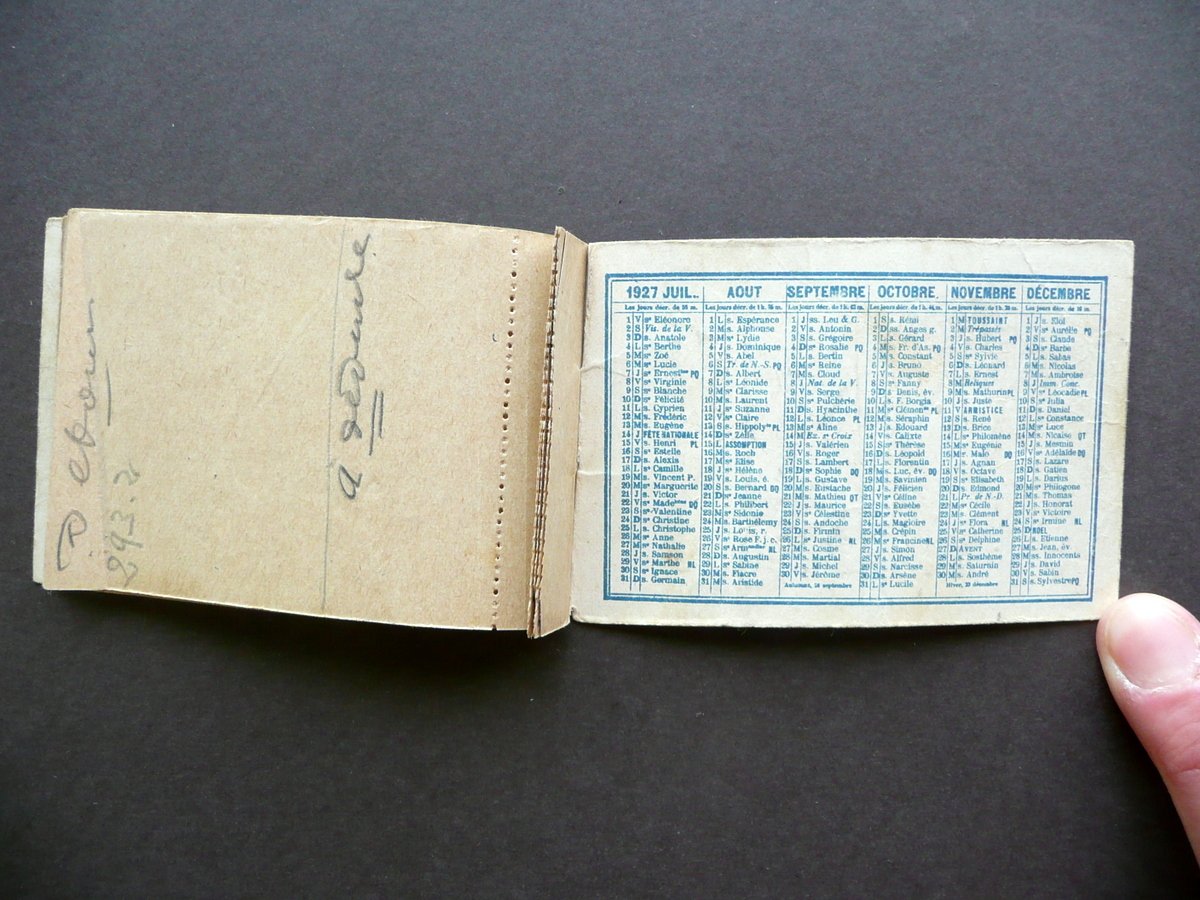 à
1927 JUIL.
Les jours décr. de 55 m.
1 V sᵉ Eléonore
2 S Vis. de la V.
3 D s. Anatole
4 L sᵉ Berthe
5 M sᵉ Zoé
6 M sᵉ Lucie
7 J s. Ernest PQ
8 V sᵉ Virginie
9 S sᵉ Blanche
10 D sᵉ Félicité
11 L s. Cyprien
12 M s. Frédéric
13 M s. Eugène
14 J FÊTE NATIONALE
15 V s. Henri PL
16 S sᵉ Estelle
17 D s. Alexis
18 L s. Camille
19 M s. Vincent P.
20 M sᵉ Marguerite
21 J s. Victor
22 V sᵉ Madˡᵉⁱⁿᵉ DQ
23 S sᵉ Valentine
24 D sᵉ Christine
25 L s. Christophe
26 M sᵉ Anne
27 M sᵉ Nathalie
28 J s. Samson
29 V sᵉ Marthe NL
30 S s. Ignace
31 D s. Germain
AOUT
1 L s. Espérance
2 M s. Alphonse
3 M sᵉ Lydie
4 J s. Dominique
5 V s. Abel
6 S Tr. de N.-S. PQ
7 D s. Albert
8 L s. Léonide
9 M sᵉ Clarisse
10 M s. Laurent
11 J sᵉ Suzanne
12 V sᵉ Claire
13 S s. Hippolyᵗᵉ PL
14 D sᵉ Zélie
15 L ASSOMPTION
16 M s. Roch
17 M s. Elise
18 J sᵉ Hélène
19 V s. Louis, é.
20 S s. Bernard DQ
21 D sᵉ Jeanne
22 L s. Philibert
23 M s. Sidonie
24 M s. Barthélemy
25 J s. Louis, r.
26 V sᵉ Rose
27 S NL
28 D s. Augustin
29 L sᵉ Sabine
30 M s. Fiacre
31 M s. Aristide
SEPTEMBRE
1 J ss. Leu & G.
2 V s. Antonin
3 S s. Grégoire
4 D sᵉ Rosalie PQ
5 L s. Bertin
6 M sᵉ Reine
7 M s. Cloud
8 J Nat. de la V.
9 V s. Serge
10 S sᵉ Pulchérie
11 D s. Hyacinthe
12 L s. Léonce PL
13 M sᵉ Aline
14 M Ex. sᵉ Croix
15 J s. Valérien
16 V s. Roger
17 S s. Lambert
18 D sᵉ Sophie DQ
19 L s. Gustave
20 M s. Eustache
21 M s. Mathieu QT
22 J s. Maurice
23 V s. Célestine
24 S s. Andoche
25 D s. Firmin
26 L sᵉ Justine NL
27 M s. Cosme
28 M s. Martial
29 J s. Michel
30 V s. Jérôme
Automne, 23 septembre
OCTOBRE
1 S s. Rémi
2 D ss. Anges g.
3 L s. Gérard
4 M s. Fr. d'As. PQ
5 M s. Constant
6 J s. Bruno
7 V s. Auguste
8 S sᵉ Fanny
9 D s. Denis, év.
10 L s. F. Borgia
11 M sᵉ Clémenᶜᵉ PL
12 M s. Séraphin
13 J s. Edouard
14 V s. Calixte
15 S sᵉ Thérèse
16 D s. Léopold
17 L s. Florentin
18 M s. Luc, év. DQ
19 M s. Savinien
20 J s. Félicien
21 V sᵉ Céline
22 S s. Eusèbe
23 D sᵉ Yvette
24 L s. Magloire
25 M s. Crépin
26 M s. Francine NL
27 J s. Simon
28 V s. Alfred
29 S s. Narcisse
30 D s. Arsène
31 L sᵉ Lucile
NOVEMBRE
1 M TOUSSAINT
2 M Trépassés
3 J s. Hubert PQ
4 V s. Charles
5 S sᵉ Sylvie
6 D s. Léonard
7 L s. Ernest
8 M Reliques
9 M s. Mathurin PL
10 J s. Juste
11 V ARMISTICE
12 S s. René
13 D s. Brice
14 L sᵉ Philomène
15 M sᵉ Eugénie
16 M s. Malo DQ
17 J s. Agnan
18 V s. Octave
19 S sᵉ Elisabeth
20 D s. Edmond
21 L Pr. de N.-D.
22 M sᵉ Cécile
23 M s. Clément
24 J sᵉ Flora NL
25 V sᵉ Catherine
26 S sᵉ Delphine
27 D AVENT
28 L s. Sosthème
29 M s. Saturnin
30 M s. André
Hiver, 22 décembre
DÉCEMBRE
1 J s. Eloi
2 V sᵉ Aurélie PQ
3 S s. Claude
4 D sᵉ Barbe
5 L s. Sabas
6 M s. Nicolas
7 M s. Ambroise
8 J Imm. Conc.
9 V sᵉ Léocadie PL
10 S sᵉ Julia
11 D s. Daniel
12 L sᵉ Constance
13 M sᵉ Luce
14 M s. Nicaise QT
15 J s. Mesmin
16 V sᵉ Adélaïde DQ
17 S s. Lazare
18 D s. Gatien
19 L s. Darius
20 M s. Philogone
21 M s. Thomas
22 J s. Honorat
23 V sᵉ Victoire
24 S sᵉ Irmine NL
25 D NOEL
26 L s. Etienne
27 M s. Jean, év.
28 M ss. Innocents
29 J s. David
30 V s. Sabin
31 S s. Sylvestre PQ